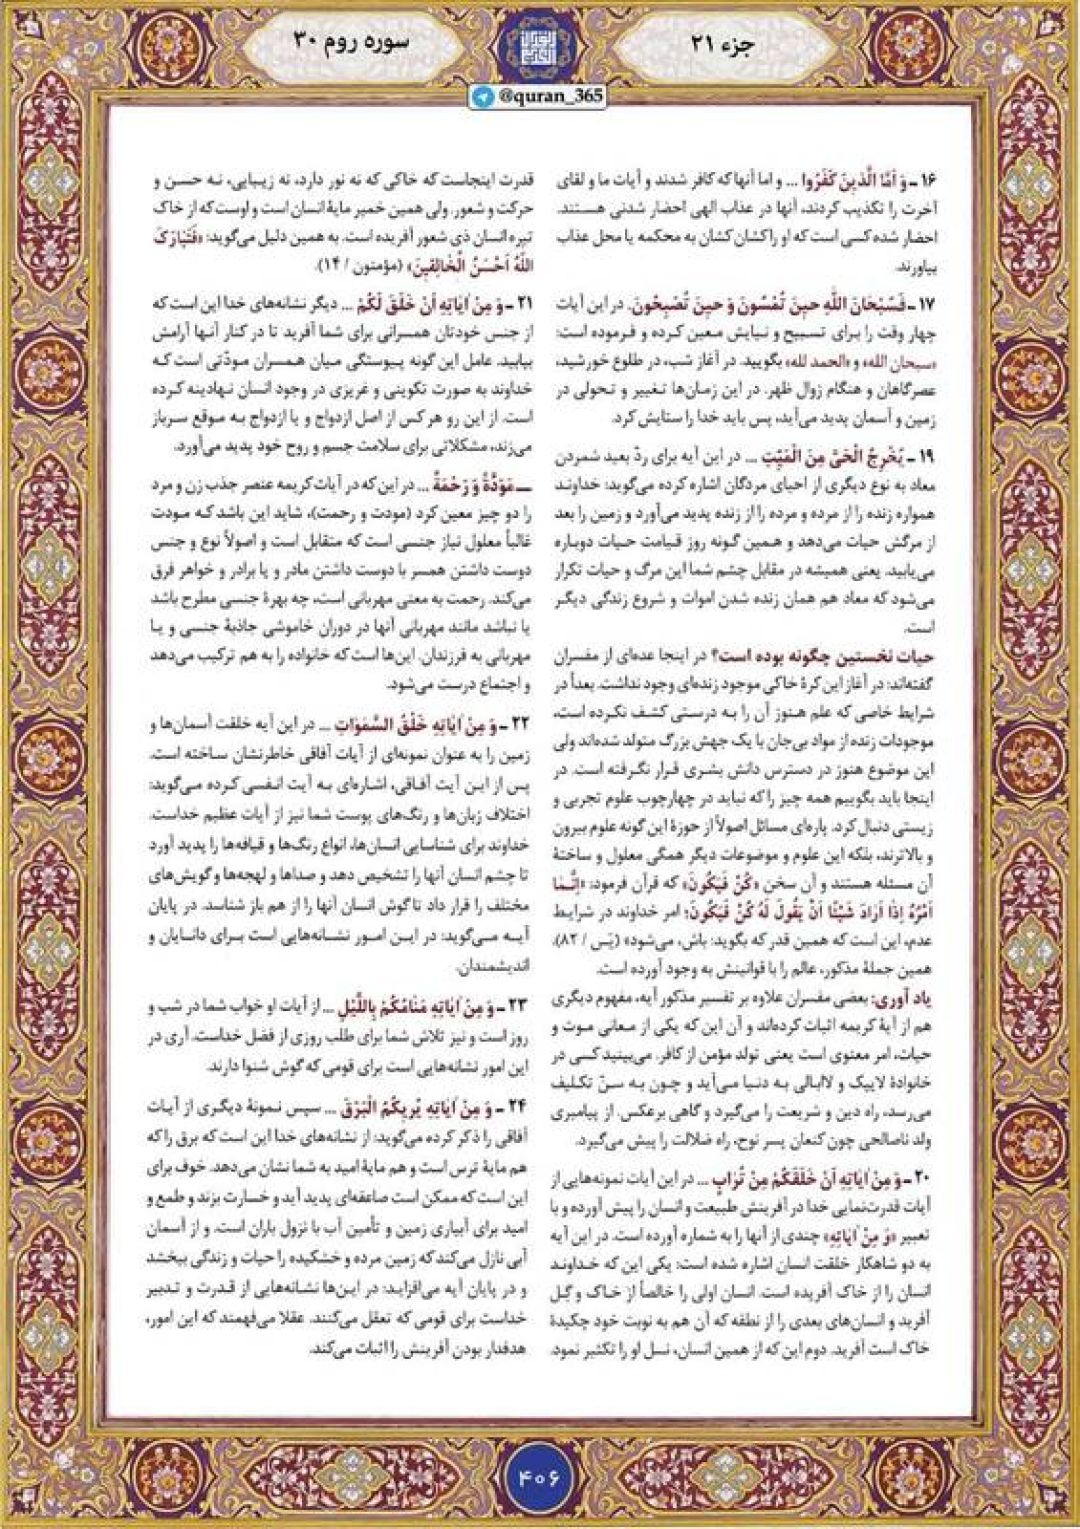 جزء ۲۱
سوره روم ۳۰
@quran_365
۱۶ ـ وَ اَمَّا الَّذینَ کَفَرُوا ... و اما آنها که کافر شدند و آیات ما و لقای
آخرت را تکذیب کردند، آنها در عذاب الهی احضار شدنی هستند.
احضار شده کسی است که او را کشان کشان به محکمه یا محل عذاب
بیاورند.
۱۷ ـ فَسُبْحَانَ اللّٰهِ حینَ تُمْسُونَ وَ حینَ تُصْبِحُونَ. در این آیات
چهار وقت را برای تسبیح و نیایش معین کرده و فرموده است:
«سبحان الله» و «الحمد لله» بگویید. در آغاز شب، در طلوع خورشید،
عصرگاهان و هنگام زوال ظهر. در این زمان‌ها تغییر و تحولی در
زمین و آسمان پدید می‌آید، پس باید خدا را ستایش کرد.
۱۹ ـ یُخْرِجُ الْحَیَّ مِنَ الْمَیِّتِ ... در این آیه برای ردّ بعید شمردن
معاد به نوع دیگری از احیای مردگان اشاره کرده می‌گوید: خداوند
همواره زنده را از مرده و مرده را از زنده پدید می‌آورد و زمین را بعد
از مرگش حیات می‌دهد و همین گونه روز قیامت حیات دوباره
می‌یابید. یعنی همیشه در مقابل چشم شما این مرگ و حیات تکرار
می‌شود که معاد هم همان زنده شدن اموات و شروع زندگی دیگر
است.
حیات نخستین چگونه بوده است؟ در اینجا عده‌ای از مفسران
گفته‌اند: در آغاز این کرۀ خاکی موجود زنده‌ای وجود نداشت. بعداً در
شرایط خاصی که علم هنوز آن را به درستی کشف نکرده است،
موجودات زنده از مواد بی‌جان با یک جهش بزرگ متولد شده‌اند ولی
این موضوع هنوز در دسترس دانش بشری قرار نگرفته است. در
اینجا باید بگوییم همه چیز را که نباید در چهارچوب علوم تجربی و
زیستی دنبال کرد. پاره‌ای مسائل اصولاً از حوزۀ این گونه علوم بیرون
و بالاترند، بلکه این علوم و موضوعات دیگر همگی معلول و ساختۀ
آن مسئله هستند و آن سخن «کُنْ فَیَکُونُ» که قرآن فرمود: «اِنَّمَا
اَمْرُهُ اِذَا اَرَادَ شَیْئًا اَنْ یَقُولَ لَهُ کُنْ فَیَکُونُ؛ امر خداوند در شرایط
عدم، این است که همین قدر که بگوید: باش، می‌شود» (یٓس / ۸۲).
همین جملۀ مذکور، عالم را با قوانینش به وجود آورده است.
یاد آوری: بعضی مفسران علاوه بر تفسیر مذکور آیه، مفهوم دیگری
هم از آیۀ کریمه اثبات کرده‌اند و آن این که یکی از معانی موت و
حیات، امر معنوی است یعنی تولد مؤمن از کافر. می‌بینید کسی در
خانوادۀ لاییک و لاابالی به دنیا می‌آید و چون به سنّ تکلیف
می‌رسد، راه دین و شریعت را می‌گیرد و گاهی برعکس. از پیامبری
ولد ناصالحی چون کنعان پسر نوح، راه ضلالت را پیش می‌گیرد.
۲۰ ـ وَ مِنْ اٰیَاتِهِ اَنْ خَلَقَکُمْ مِنْ تُرَابٍ ... در این آیات نمونه‌هایی از
آیات قدرت‌نمایی خدا در آفرینش طبیعت و انسان را پیش آورده و با
تعبیر «وَ مِنْ اٰیَاتِهِ» چندی از آنها را به شماره آورده است. در این آیه
به دو شاهکار خلقت انسان اشاره شده است: یکی این که خداوند
انسان را از خاک آفریده است. انسان اولی را خالصاً از خاک و گِل
آفرید و انسان‌های بعدی را از نطفه که آن هم به نوبت خود چکیدۀ
خاک است آفرید. دوم این که از همین انسان، نسل او را تکثیر نمود.
قدرت اینجاست که خاکی که نه نور دارد، نه زیبایی، نه حسن و
حرکت و شعور. ولی همین خمیر مایۀ انسان است و اوست که از خاک
تیره انسان ذی شعور آفریده است. به همین دلیل می‌گوید: «فَتَبَارَکَ
اللّٰهُ اَحْسَنُ الْخَالِقینَ» (مؤمنون / ۱۴).
۲۱ ـ وَ مِنْ اٰیَاتِهِ اَنْ خَلَقَ لَکُمْ ... دیگر نشانه‌های خدا این است که
از جنس خودتان همسرانی برای شما آفرید تا در کنار آنها آرامش
بیابید. عامل این گونه پیوستگی میان همسران مودّتی است که
خداوند به صورت تکوینی و غریزی در وجود انسان نهادینه کرده
است. از این رو هر کس از اصل ازدواج و یا ازدواج به موقع سرباز
می‌زند، مشکلاتی برای سلامت جسم و روح خود پدید می‌آورد.
ـــ مَوَدَّةً وَ رَحْمَةً ... در این که در آیات کریمه عنصر جذب زن و مرد
را دو چیز معین کرد (مودت و رحمت)، شاید این باشد که مودت
غالباً معلول نیاز جنسی است که متقابل است و اصولاً نوع و جنس
دوست داشتن همسر با دوست داشتن مادر و یا برادر و خواهر فرق
می‌کند. رحمت به معنی مهربانی است، چه بهرۀ جنسی مطرح باشد
یا نباشد مانند مهربانی آنها در دوران خاموشی جاذبۀ جنسی و یا
مهربانی به فرزندان. این‌ها است که خانواده را به هم ترکیب می‌دهد
و اجتماع درست می‌شود.
۲۲ ـ وَ مِنْ اٰیَاتِهِ خَلْقُ السَّمٰوَاتِ ... در این آیه خلقت آسمان‌ها و
زمین را به عنوان نمونه‌ای از آیات آفاقی خاطرنشان ساخته است.
پس از این آیت آفاقی، اشاره‌ای به آیت انفسی کرده می‌گوید:
اختلاف زبان‌ها و رنگ‌های پوست شما نیز از آیات عظیم خداست.
خداوند برای شناسایی انسان‌ها، انواع رنگ‌ها و قیافه‌ها را پدید آورد
تا چشم انسان آنها را تشخیص دهد و صداها و لهجه‌ها و گویش‌های
مختلف را قرار داد تا گوش انسان آنها را از هم باز شناسد. در پایان
آیه می‌گوید: در این امور نشانه‌هایی است برای دانایان و
اندیشمندان.
۲۳ ـ وَ مِنْ اٰیَاتِهِ مَنَامُکُمْ بِاللَّیْلِ ... از آیات او خواب شما در شب و
روز است و نیز تلاش شما برای طلب روزی از فضل خداست. آری در
این امور نشانه‌هایی است برای قومی که گوش شنوا دارند.
۲۴ ـ وَ مِنْ اٰیَاتِهِ یُریکُمُ الْبَرْقَ ... سپس نمونۀ دیگری از آیات
آفاقی را ذکر کرده می‌گوید: از نشانه‌های خدا این است که برق را که
هم مایۀ ترس است و هم مایۀ امید به شما نشان می‌دهد. خوف برای
این است که ممکن است صاعقه‌ای پدید آید و خسارت بزند و طمع و
امید برای آبیاری زمین و تأمین آب با نزول باران است. و از آسمان
آبی نازل می‌کند که زمین مرده و خشکیده را حیات و زندگی ببخشد
و در پایان آیه می‌افزاید: در این‌ها نشانه‌هایی از قدرت و تدبیر
خداست برای قومی که تعقل می‌کنند. عقلا می‌فهمند که این امور،
هدفدار بودن آفرینش را اثبات می‌کند.
۴۰۶